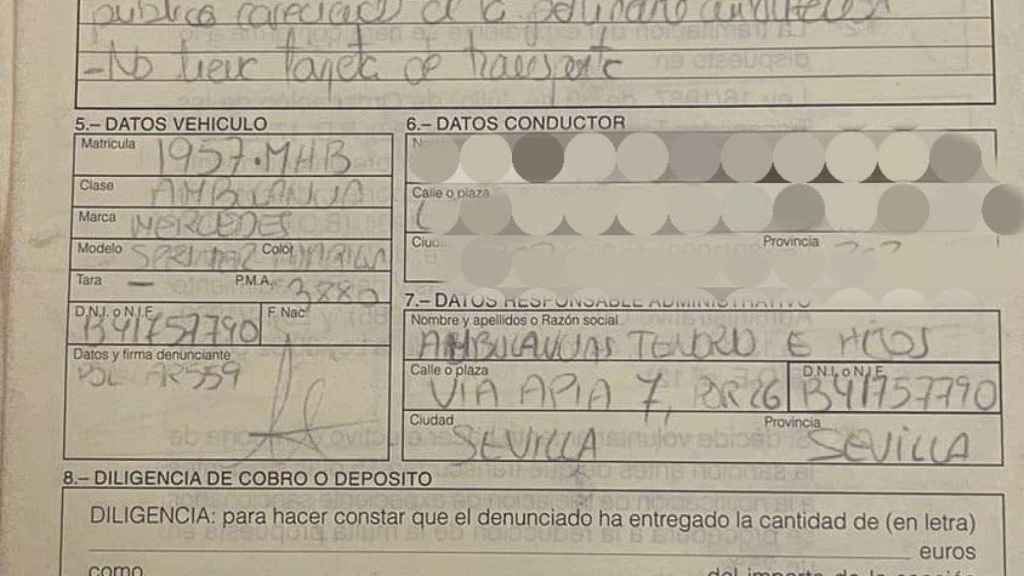 público
-No tiene tarjeta de transporte
5.– DATOS VEHICULO
Matrícula 1957·MHB
Clase AMBULANCIA
Marca MERCEDES
Modelo SPRINTER Color AMARILLA
Tara — P.M.A. 3880
D.N.I. o N.I.F. B41757790 F. Nac.
Datos y firma denunciante
POL AR559
6.– DATOS CONDUCTOR
Calle o plaza
Provincia
7.– DATOS RESPONSABLE ADMINISTRATIVO
Nombre y apellidos o Razón social
AMBULANCIAS TENORIO E HIJOS
Calle o plaza VIA APIA 7, POR 26 D.N.I. o N.I.F. B41757790
Ciudad SEVILLA Provincia SEVILLA
8.– DILIGENCIA DE COBRO O DEPOSITO
DILIGENCIA: para hacer constar que el denunciado ha entregado la cantidad de (en letra)
euros
como del importe de la sanción